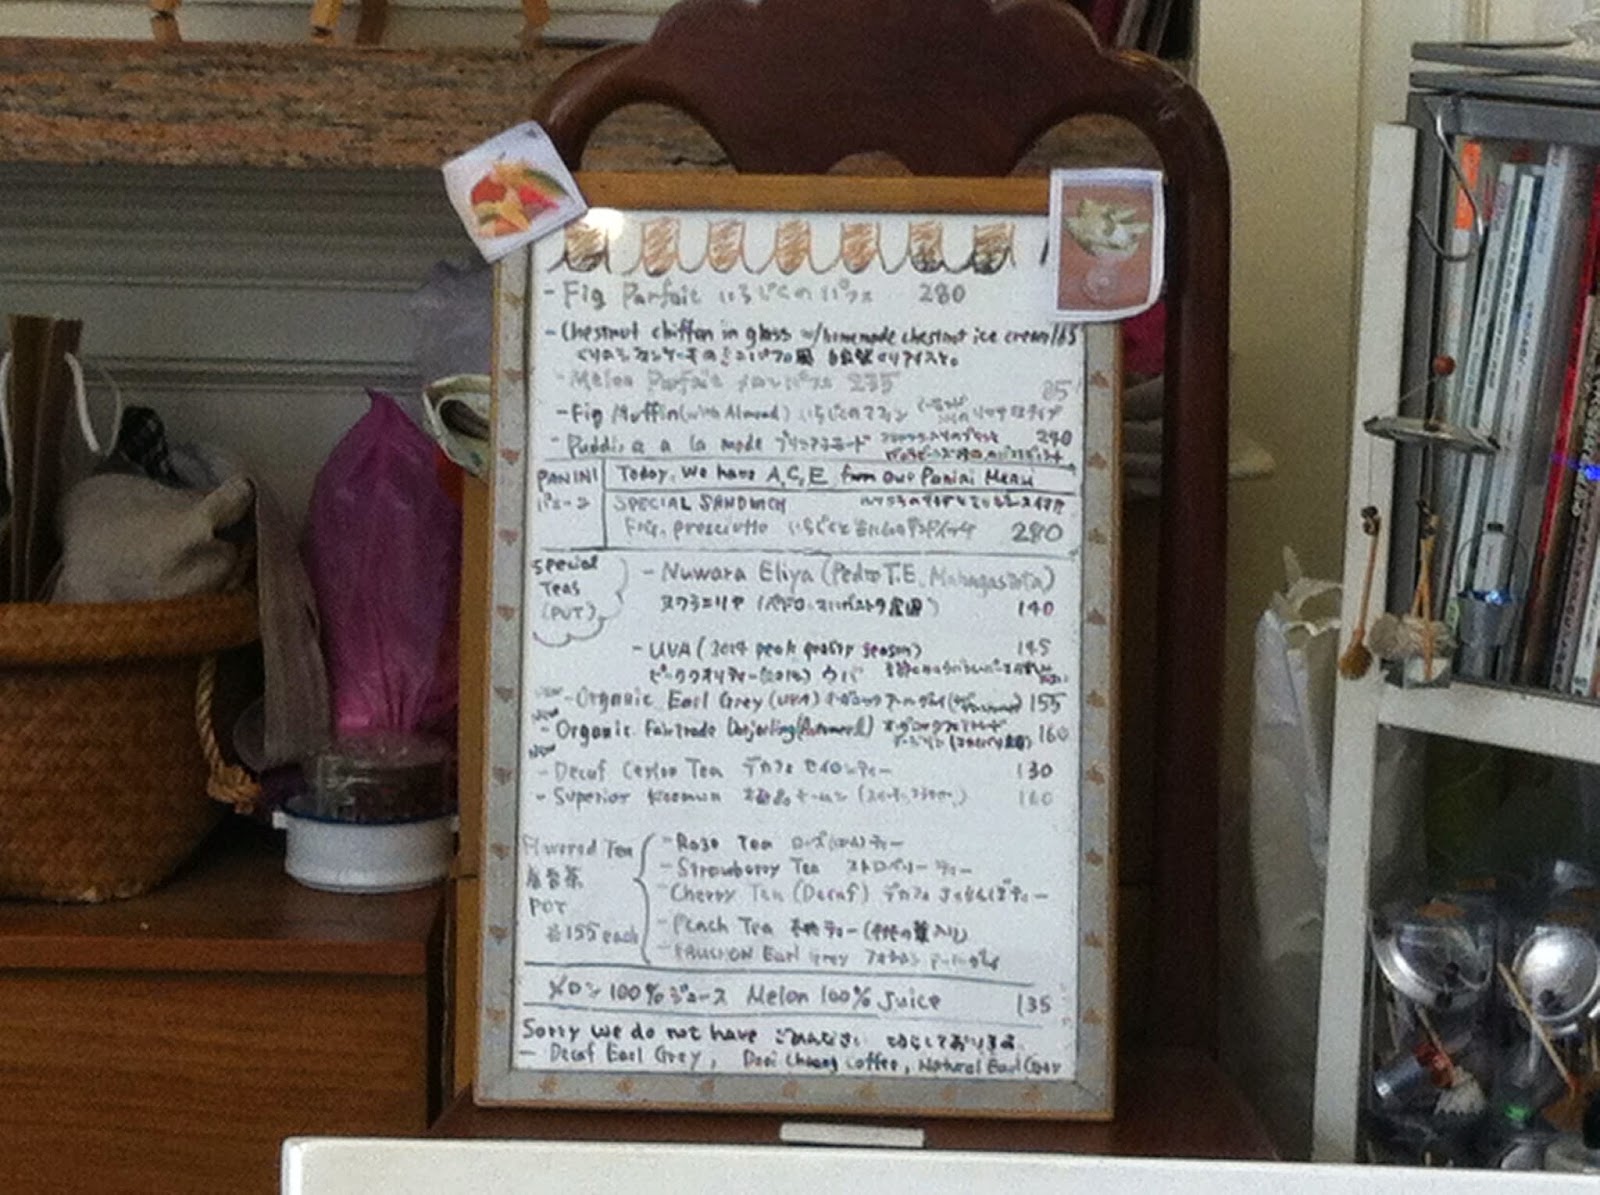 - Fig Parfait いちじくのパフェ 280
- Chestnut chiffon in glass w/homemade chestnut ice cream 165
- Melon Parfait メロンパフェ 255
85
- Fig Muffin (with Almond) いちじくのマフィン
- Pudding a la mode プリンアラモード 240
PANINI Today, We have A, C, E from our Panini Menu
パニーニ SPECIAL SANDWICH
Fig, presciutto いちじくと生ハムのサンドイッチ 280
Special Teas (POT)
- Nuwara Eliya (Pedro T.E, Mahagastota)
ヌワラエリヤ 140
- UVA (2014 peak quality season) 145
ピーククオリティー(2014) ウバ
NEW - Organic Earl Grey (UVA) オーガニックアールグレイ 155
NEW - Organic Fairtrade Darjeeling (Autumnal) 160
NEW
- Decaf Ceylon Tea デカフェ セイロンティー 130
- Superior Keemun キームン 160
Flavored Tea
POT
各155 each
- Rose Tea ローズティー
- Strawberry Tea ストロベリーティー
- Cherry Tea (Decaf) デカフェ さくらんぼティー
- Peach Tea ティー
- FAUCHON Earl Grey フォション アールグレイ
メロン100%ジュース Melon 100% Juice 135
Sorry we do not have ごめんなさい きらしております。
- Decaf Earl Grey, Doi Chaang Coffee, Natural Earl Grey